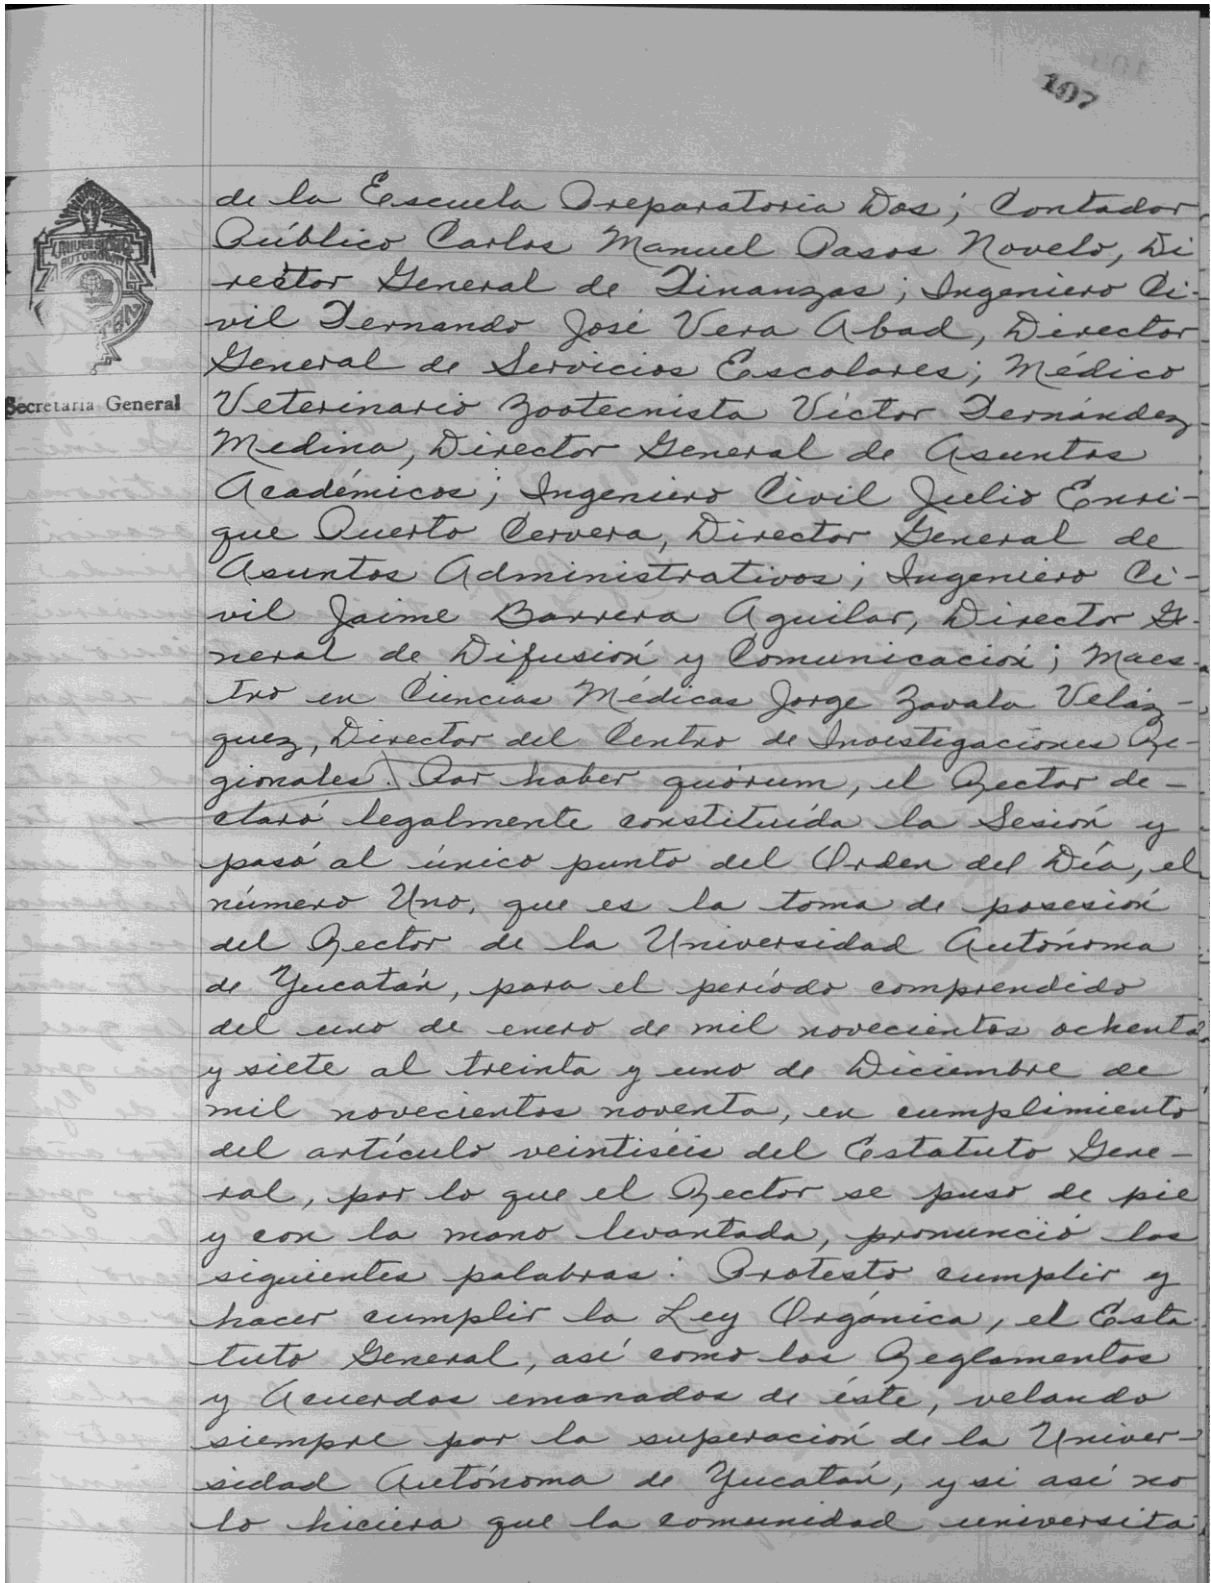 107
UNIVERSIDAD
AUTONOMA
Secretaria General
de la Escuela Preparatoria Dos; Contador
Público Carlos Manuel Pasos Novelo, Di
rector General de Finanzas; Ingeniero Ci-
vil Fernando José Vera Abad, Director
General de Servicios Escolares; Médico
Veterinario Zootecnista Víctor Fernández
Medina, Director General de Asuntos
Académicos; Ingeniero Civil Julio Enri-
que Puerto Cervera, Director General de
Asuntos Administrativos; Ingeniero Ci-
vil Jaime Barrera Aguilar, Director Ge-
neral de Difusión y Comunicación; Maes-
tro en Ciencias Médicas Jorge Zavala Veláz-
quez, Director del Centro de Investigaciones Re-
gionales. Por haber quórum, el Rector de-
claró legalmente constituída la Sesión y
pasó al único punto del Orden del Día, el
número Uno, que es la toma de posesión
del Rector de la Universidad Autónoma
de Yucatán, para el período comprendido
del uno de enero de mil novecientos ochenta
y siete al treinta y uno de Diciembre de
mil novecientos noventa, en cumplimiento
del artículo veintiséis del Estatuto Gene-
ral, por lo que el Rector se puso de pie
y con la mano levantada, pronunció las
siguientes palabras: Protesto cumplir y
hacer cumplir la Ley Orgánica, el Esta
tuto General, así como los Reglamentos
y Acuerdos emanados de éste, velando
siempre por la superación de la Univer-
sidad Autónoma de Yucatán, y si así no
lo hiciera que la comunidad universita